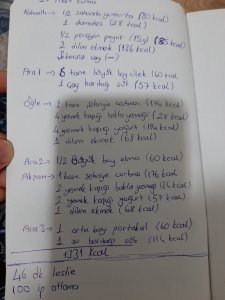 Kahvaltı → 1/2 sahanda yumurta (80 kcal)
1 domates (28 kcal)
1/2 porsiyon peynir (15g) (35 kcal)
2 dilim ekmek (136 kcal)
Şekersiz çay (—)
Ara1 → 6 tane büyük boy çilek (60 kcal)
1 çay bardağı süt (57 kcal)
Öğle → 1 kase şehriye çorbası (176 kcal)
4 yemek kaşığı bakla yemeği (
4 yemek kaşığı yoğurt (114 kcal)
1 dilim ekmek (68 kcal)
Ara2 → 1/2 büyük boy elma (60 kcal)
Akşam → 1 kase şehriye çorbası (176
2 yemek kaşığı bakla yemeği (114 kcal)
2 yemek kaşığı yoğurt (57 kcal)
1 dilim ekmek (68 kcal)
Ara3 → 1 orta boy portakal (60 kcal)
1 su bardağı süt (114 kcal)
1331 kcal
46 dk leslie
100 ip atlama